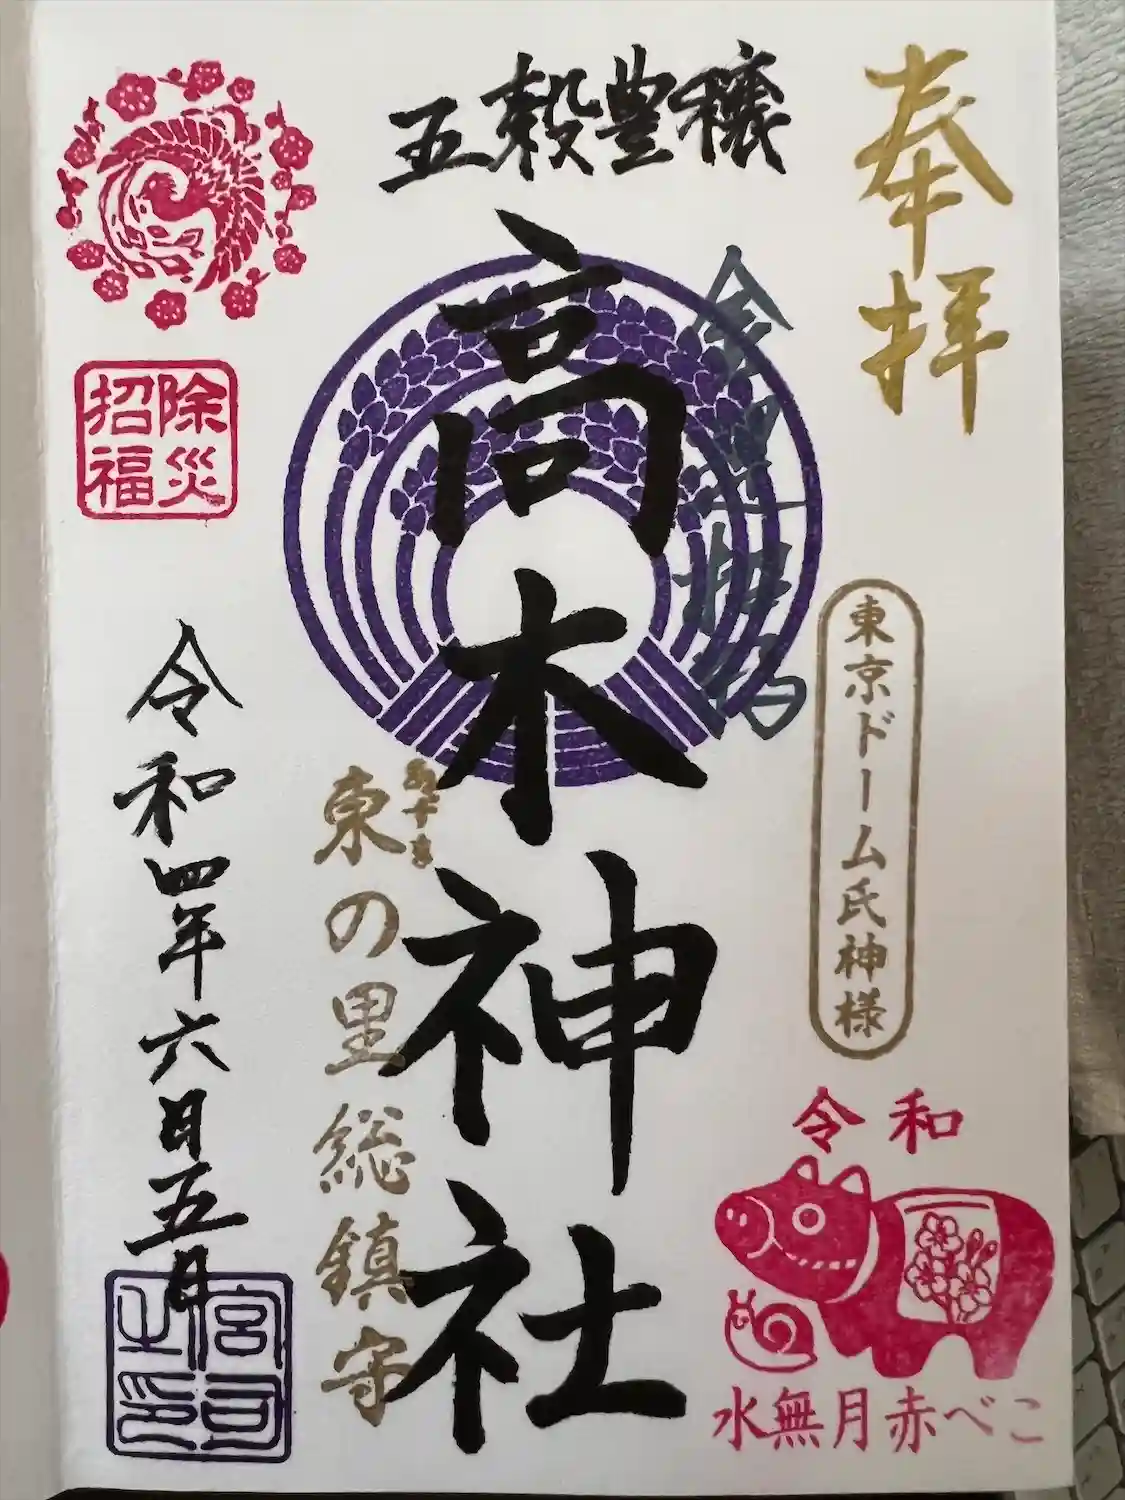 奉拝
五穀豊穣
高木神社
東京ドーム氏神様
令和
水無月赤べこ
東の里総鎮守
除災
招福
令和四年六月五日
宮司
之印